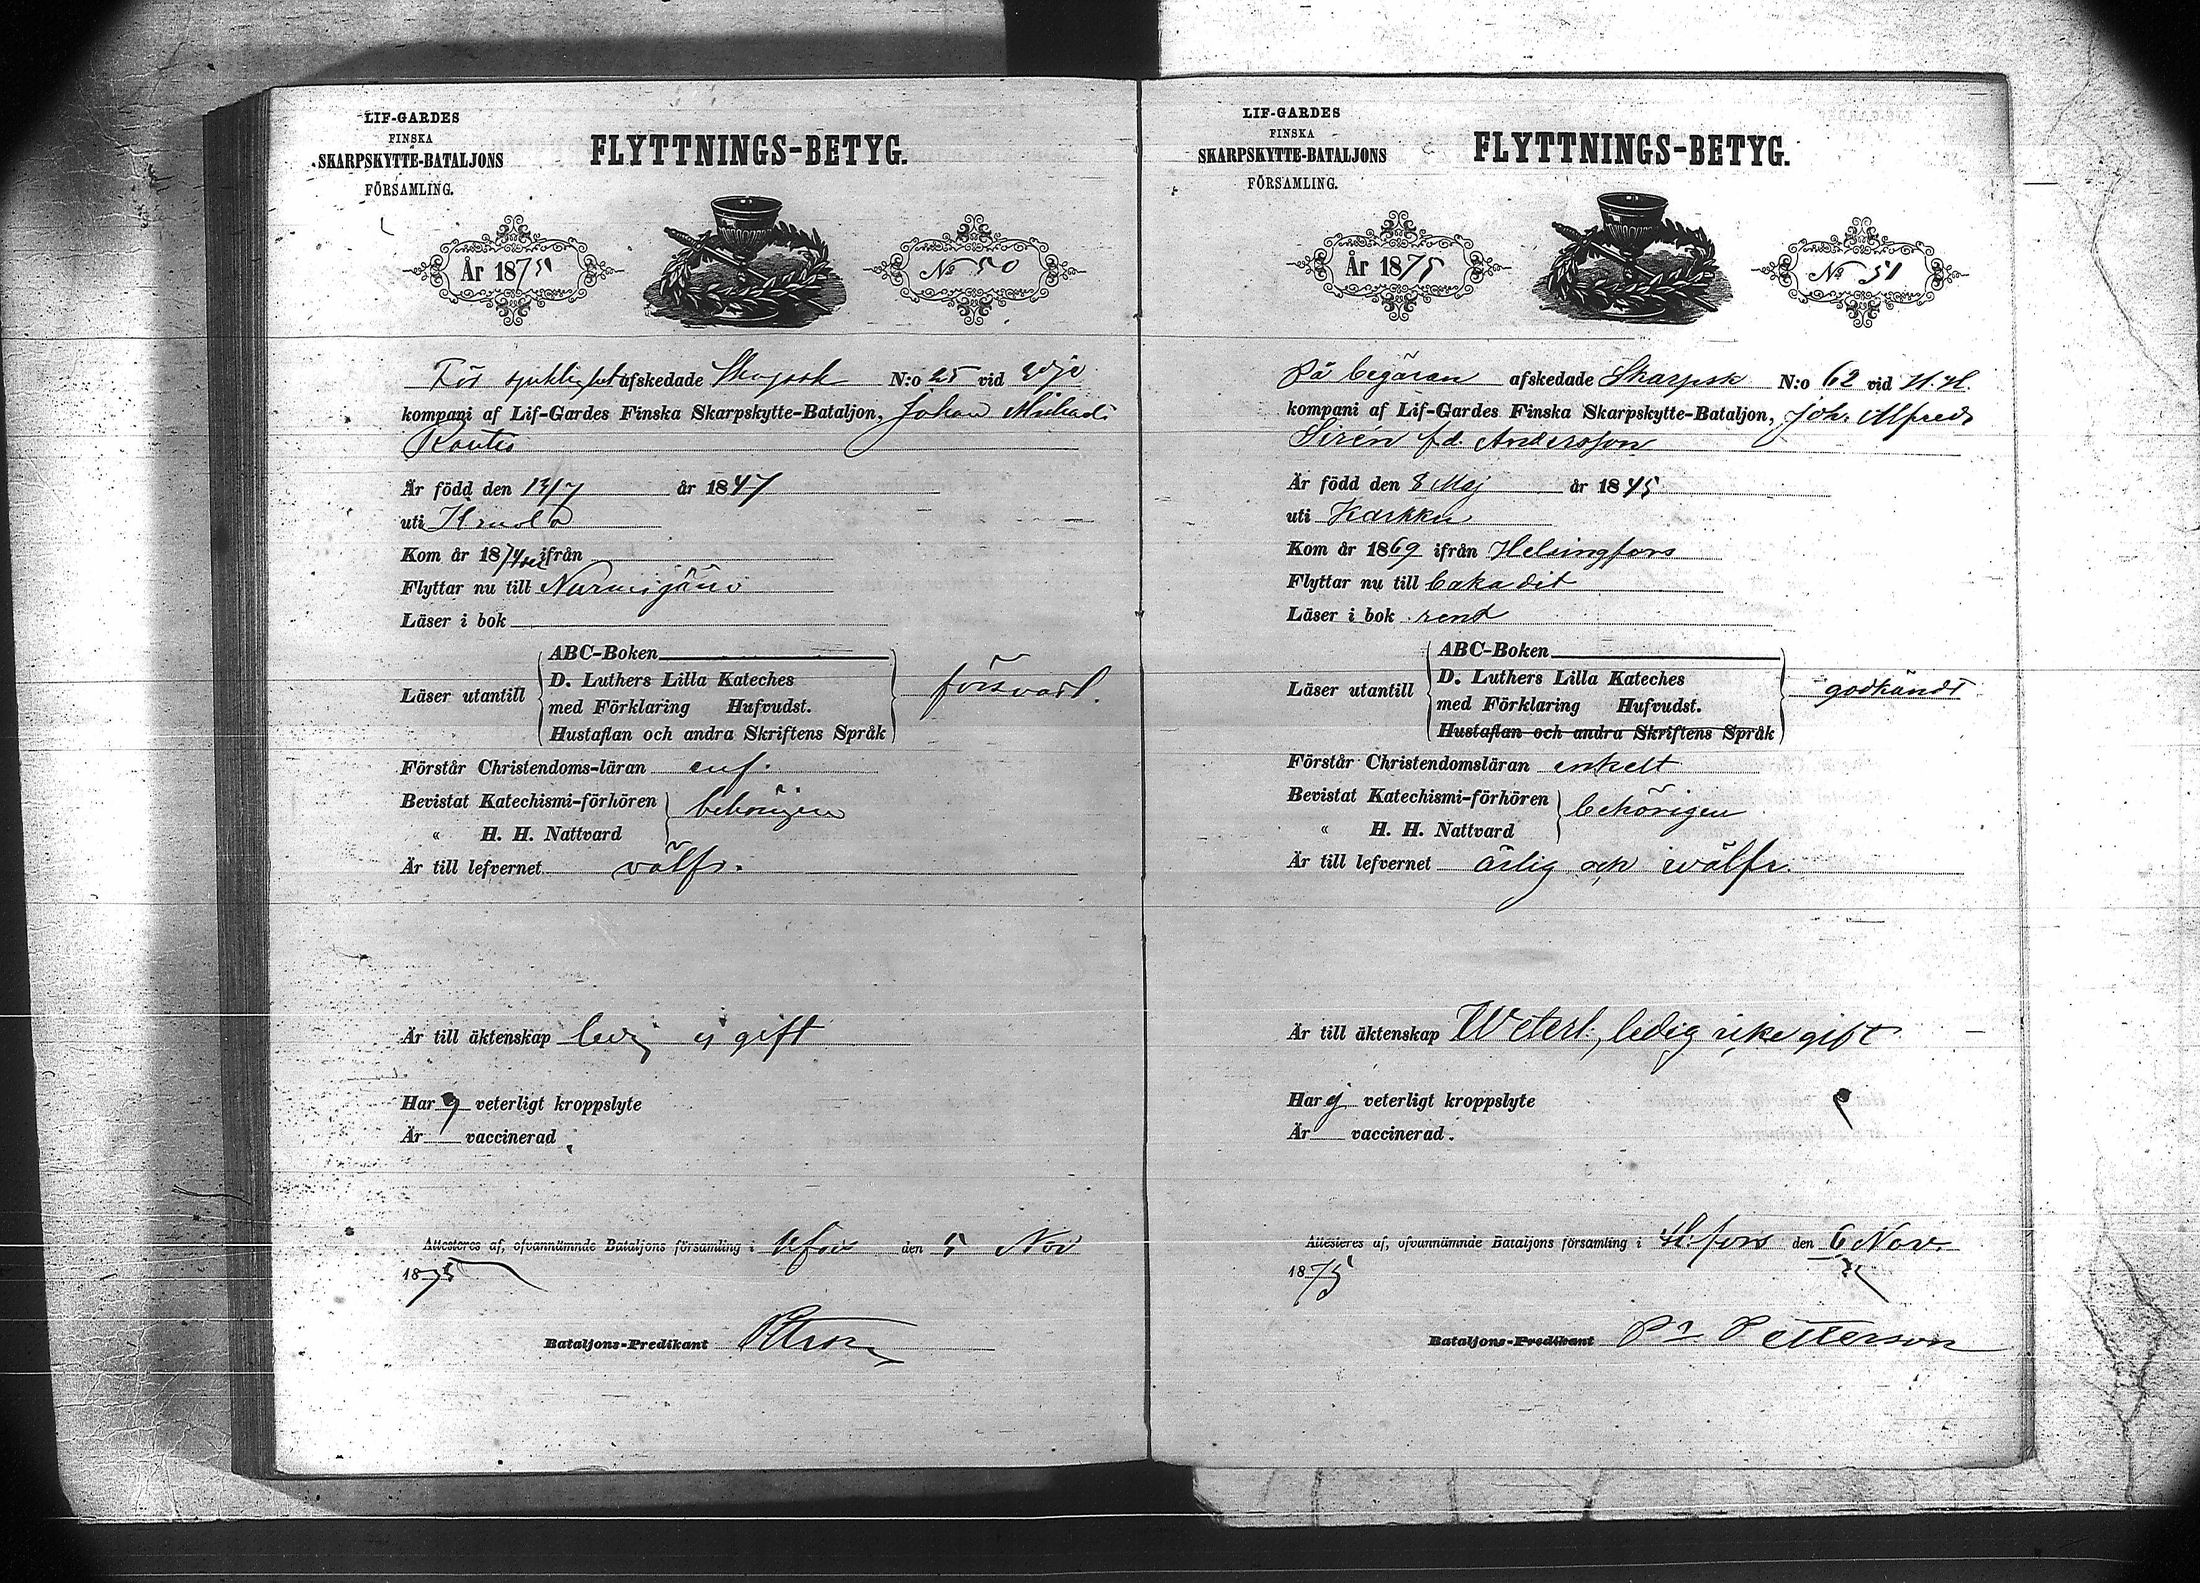 LIF-GARDES
FINSKA
SKARPSKYTTE-BATALJONS
FÖRSAMLING.
FLYTTNINGS-BETYG.
År 1875
No 50
För sjuklighet afskedade N:o 25 vid
kompani af Lif-Gardes Finska Skarpskytte-Bataljon, Johan Michael
Är född den 13/7 år 1847
uti
Kom år 1874 ifrån
Flyttar nu till Nurmijärvi
Läser i bok
ABC-Boken
Läser utantill D. Luthers Lilla Kateches
med Förklaring Hufvudst.
Hustaflan och andra Skriftens Språk
försvarl.
Förstår Christendoms-läran enf.
Bevistat Katechismi-förhören behörigen
" H. H. Nattvard
Är till lefvernet välfr.
Är till äktenskap ledig ej gift
Har ej veterligt kroppslyte
Är vaccinerad.
Attesteras af, ofvannämnde Bataljons församling i Hfors den 5 Nov
1875
Bataljons-Predikant
LIF-GARDES
FINSKA
SKARPSKYTTE-BATALJONS
FÖRSAMLING.
FLYTTNINGS-BETYG.
År 1875
No 51
På begäran afskedade Skarpsk N:o 62 vid
kompani af Lif-Gardes Finska Skarpskytte-Bataljon, Joh. Alfred
Sirén f.d. Andersson
Är född den 8 Maj år 1845
uti Karkku
Kom år 1869 ifrån Helsingfors
Flyttar nu till baka dit
Läser i bok rent
ABC-Boken
Läser utantill D. Luthers Lilla Kateches
med Förklaring Hufvudst.
Hustaflan och andra Skriftens Språk
godkändt
Förstår Christendomsläran enkelt
Bevistat Katechismi-förhören behörigen
" H. H. Nattvard
Är till lefvernet ärlig och wälfr.
Är till äktenskap Weterl., ledig icke gift
Har ej veterligt kroppslyte
Är vaccinerad.
Attesteras af, ofvannämnde Bataljons församling i H:fors den 6 Nov.
1875
Bataljons-Predikant Petterson